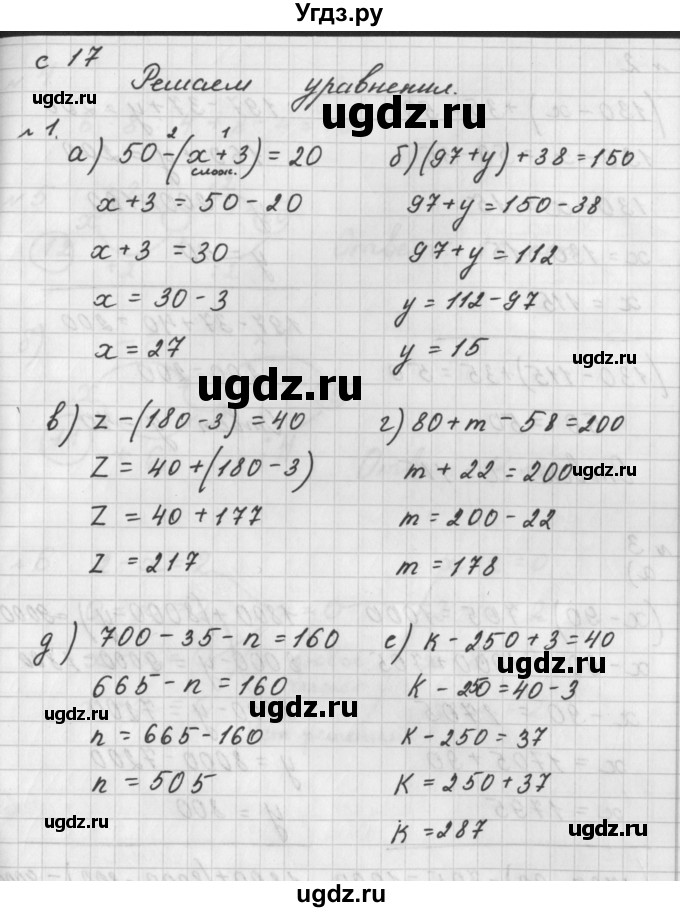 Угдз.ру
с 17
Решаем уравнения.
ugdz.ru
ugdz.ru
ugdz.ru
№ 1.
2 1
а) 50-(x+3)=20
слож.
x+3 = 50-20
x+3 = 30
x = 30-3
x = 27
б) (97+y)+38=150
97+y=150-38
97+y=112
y=112-97
y = 15
ugdz.ru
ugdz.ru
в) z-(180-3)=40
z = 40+(180-3)
z = 40+177
z = 217
г) 80+m-58=200
m+22=200
ugdz.ru
m=200-22
m=178
д) 700-35-n=160
665-n=160
n=665-160
n = 505
ugdz.ru
ugdz.ru
ugdz.ru
е) к-250+3=40
ugdz.ru
к-250=40-3
к-250=37
к=250+37
к=287
ugdz.ru
ugdz.ru